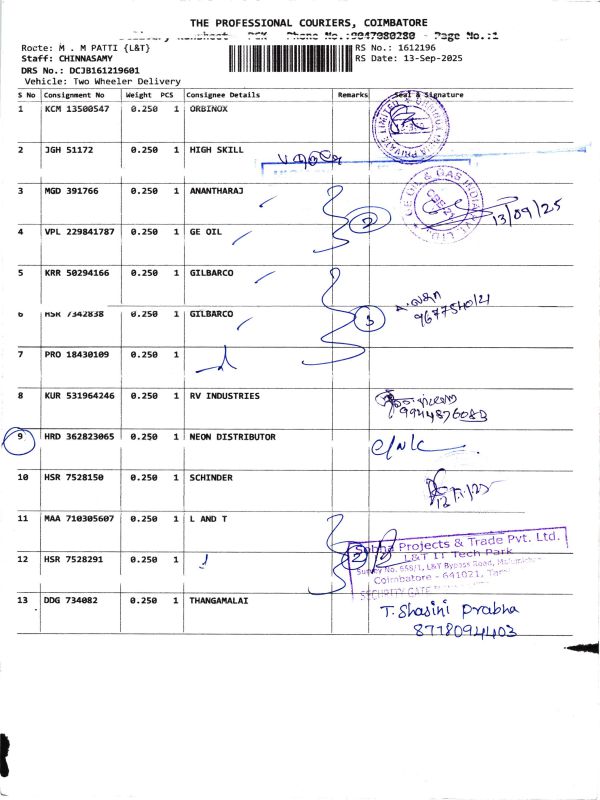 THE PROFESSIONAL COURIERS, COIMBATORE
Phone No.:9047080280 - Page No.:1
Rocte: M . M PATTI {L&T}
RS No.: 1612196
Staff: CHINNASAMY
RS Date: 13-Sep-2025
DRS No.: DCJB161219601
Vehicle: Two Wheeler Delivery
S No Consignment No Weight PCS Consignee Details Remarks Seal & Signature
1 KCM 13500547 0.250 1 ORBINOX
2 JGH 51172 0.250 1 HIGH SKILL
3 MGD 391766 0.250 1 ANANTHARAJ
2
13/09/25
4 VPL 229841787 0.250 1 GE OIL
5 KRR 50294166 0.250 1 GILBARCO
6 HSR 7342838 0.250 1 GILBARCO
3
9677540121
7 PRO 18430109 0.250 1
8 KUR 531964246 0.250 1 RV INDUSTRIES
9 HRD 362823065 0.250 1 NEON DISTRIBUTOR
10 HSR 7528150 0.250 1 SCHINDER
11 MAA 710305607 0.250 1 L AND T
Sobha Projects & Trade Pvt. Ltd.
L&T IT Tech Park
Survey No. 658/1, L&T Bypass Road,
Coimbatore - 641021,
SECURITY GATE
12 HSR 7528291 0.250 1
2
13 DDG 734082 0.250 1 THANGAMALAI
T. Shasini prabha
8778094403